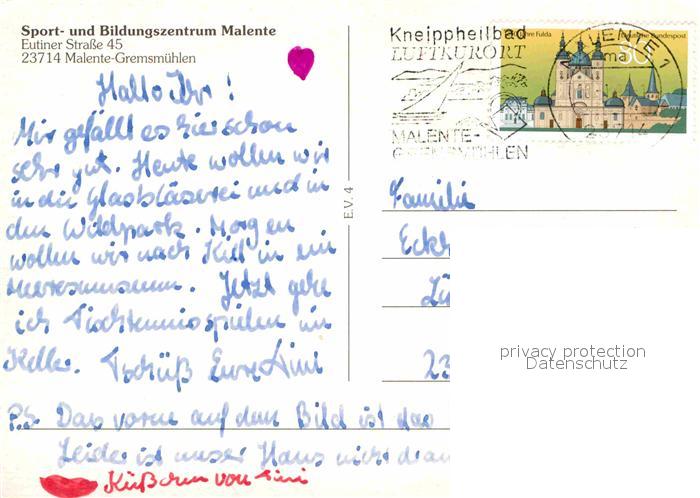 Sport- und Bildungszentrum Malente
Eutiner Straße 45
23714 Malente-Gremsmühlen
Hallo Ihr!
Mir gefällt es hier schon
sehr gut. Heute wollen wir
in die Glasbläserei und in
den Wildpark. Morgen
wollen wir nach Kiel in ein
Meeresmuseum. Jetzt gehe
ich Tischtennisspielen im
Keller. Tschüß Eure Sini
P.S. Das vorne auf dem Bild ist das
Leider ist unser Haus nicht dr
Küßchen von Sini
E.V. 4
Kneippheilbad
LUFTKURORT
MALENTE-
GREMSMÜHLEN
Fulda
Deutsche Bundespost
80
MALENTE 1
ma
Familie
Eck
Lü
23
privacy protection
Datenschutz